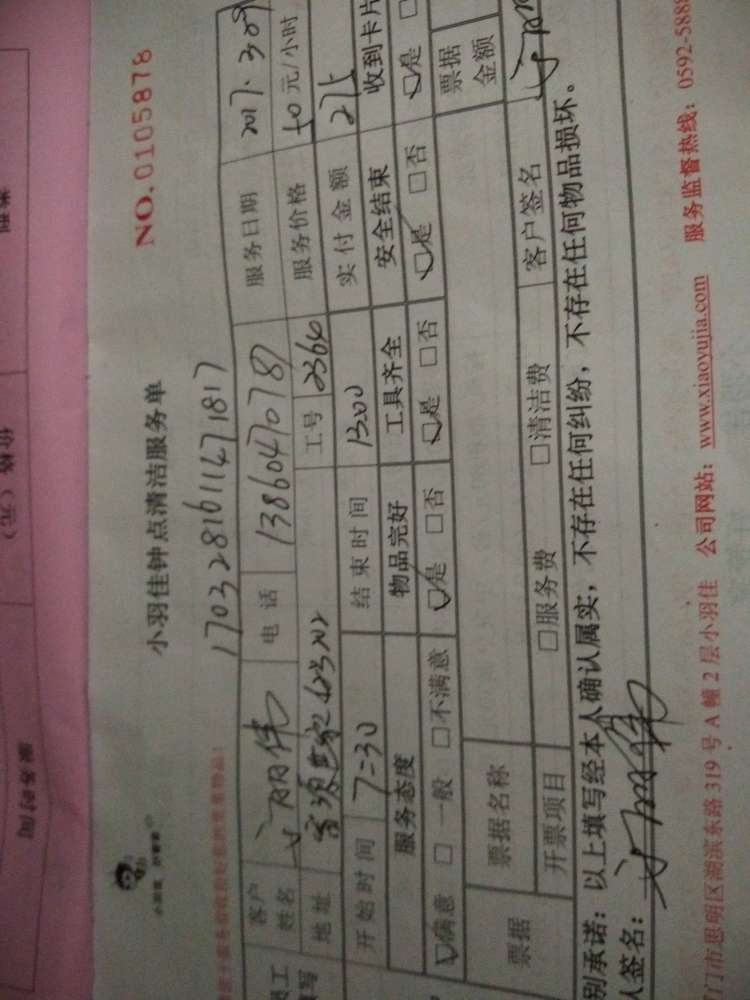 NO.0105878
小羽佳钟点清洁服务单
1703281611471817
客户姓名 电话 13860470787 服务日期 2017.3.
地址 工号 2364 服务价格 50元/小时
开始时间 7=30 结束时间 1300 实付金额 275
服务态度 物品完好 工具齐全 安全结束 收到卡片
☑满意 □一般 □不满意 ☑是 □否 ☑是 □否 ☑是 □否 ☑是 □
票据 票据名称 票据金额
开票项目 □服务费 □清洁费 客户签名
别承诺：以上填写经本人确认属实，不存在任何纠纷，不存在任何物品损坏。
人签名：
门市思明区湖滨东路319号A幢2层小羽佳 公司网站：www.xiaoyujia.com 服务监督热线：0592-5888
价格（元）
服务时间